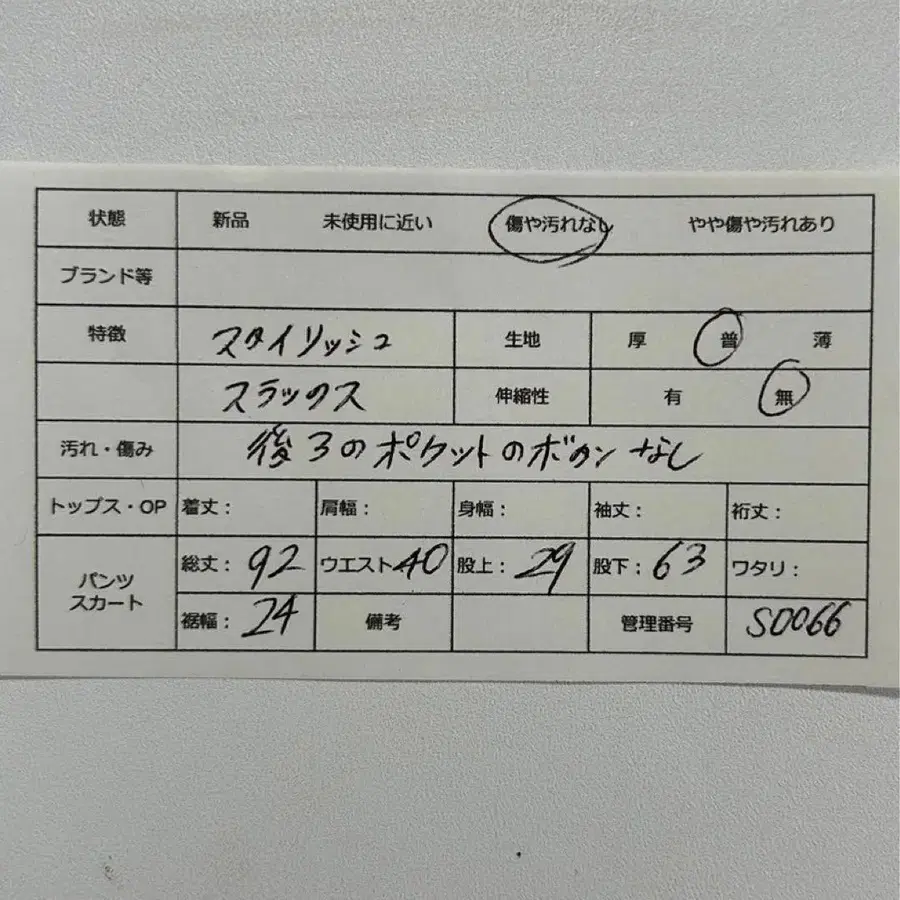 状態 新品 未使用に近い 傷や汚れなし やや傷や汚れあり
ブランド等
特徴 スタイリッシュ 生地 厚 普 薄
スラックス 伸縮性 有 無
汚れ・傷み 後ろのポケットのボタンなし
トップス・OP 着丈： 肩幅： 身幅： 袖丈： 裄丈：
パンツ スカート 総丈：92 ウエスト40 股上：29 股下：63 ワタリ：
裾幅：24 備考 管理番号 S0066